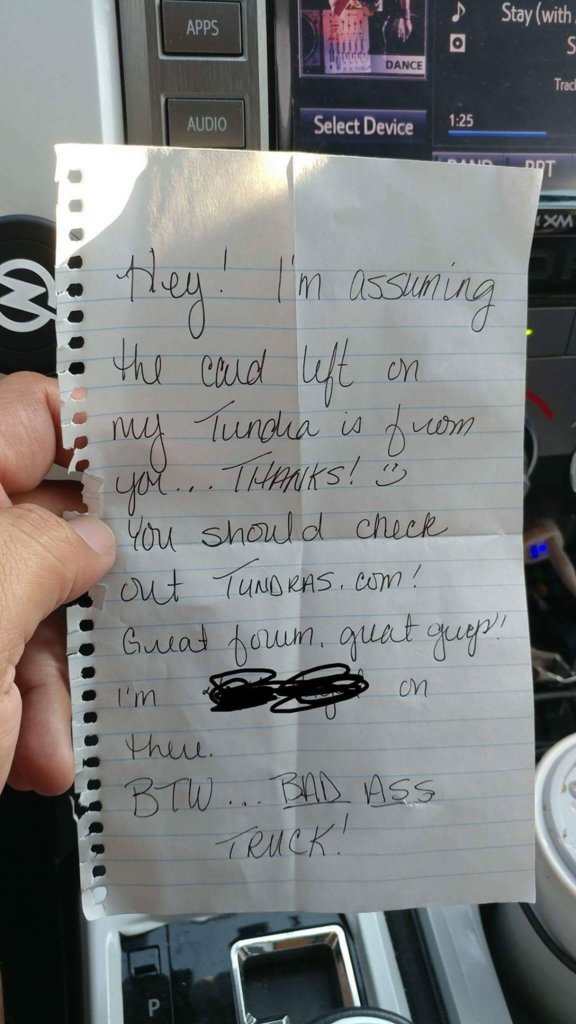 APPS
AUDIO
DANCE
Select Device
Stay (with
1:25
XM
Hey! I'm assuming
the card left on
my Tundra is from
you... THANKS! :)
You should check
out TUNDRAS.COM!
Great forum, great guys!
I'm on
there.
BTW... BAD ASS
TRUCK!
P